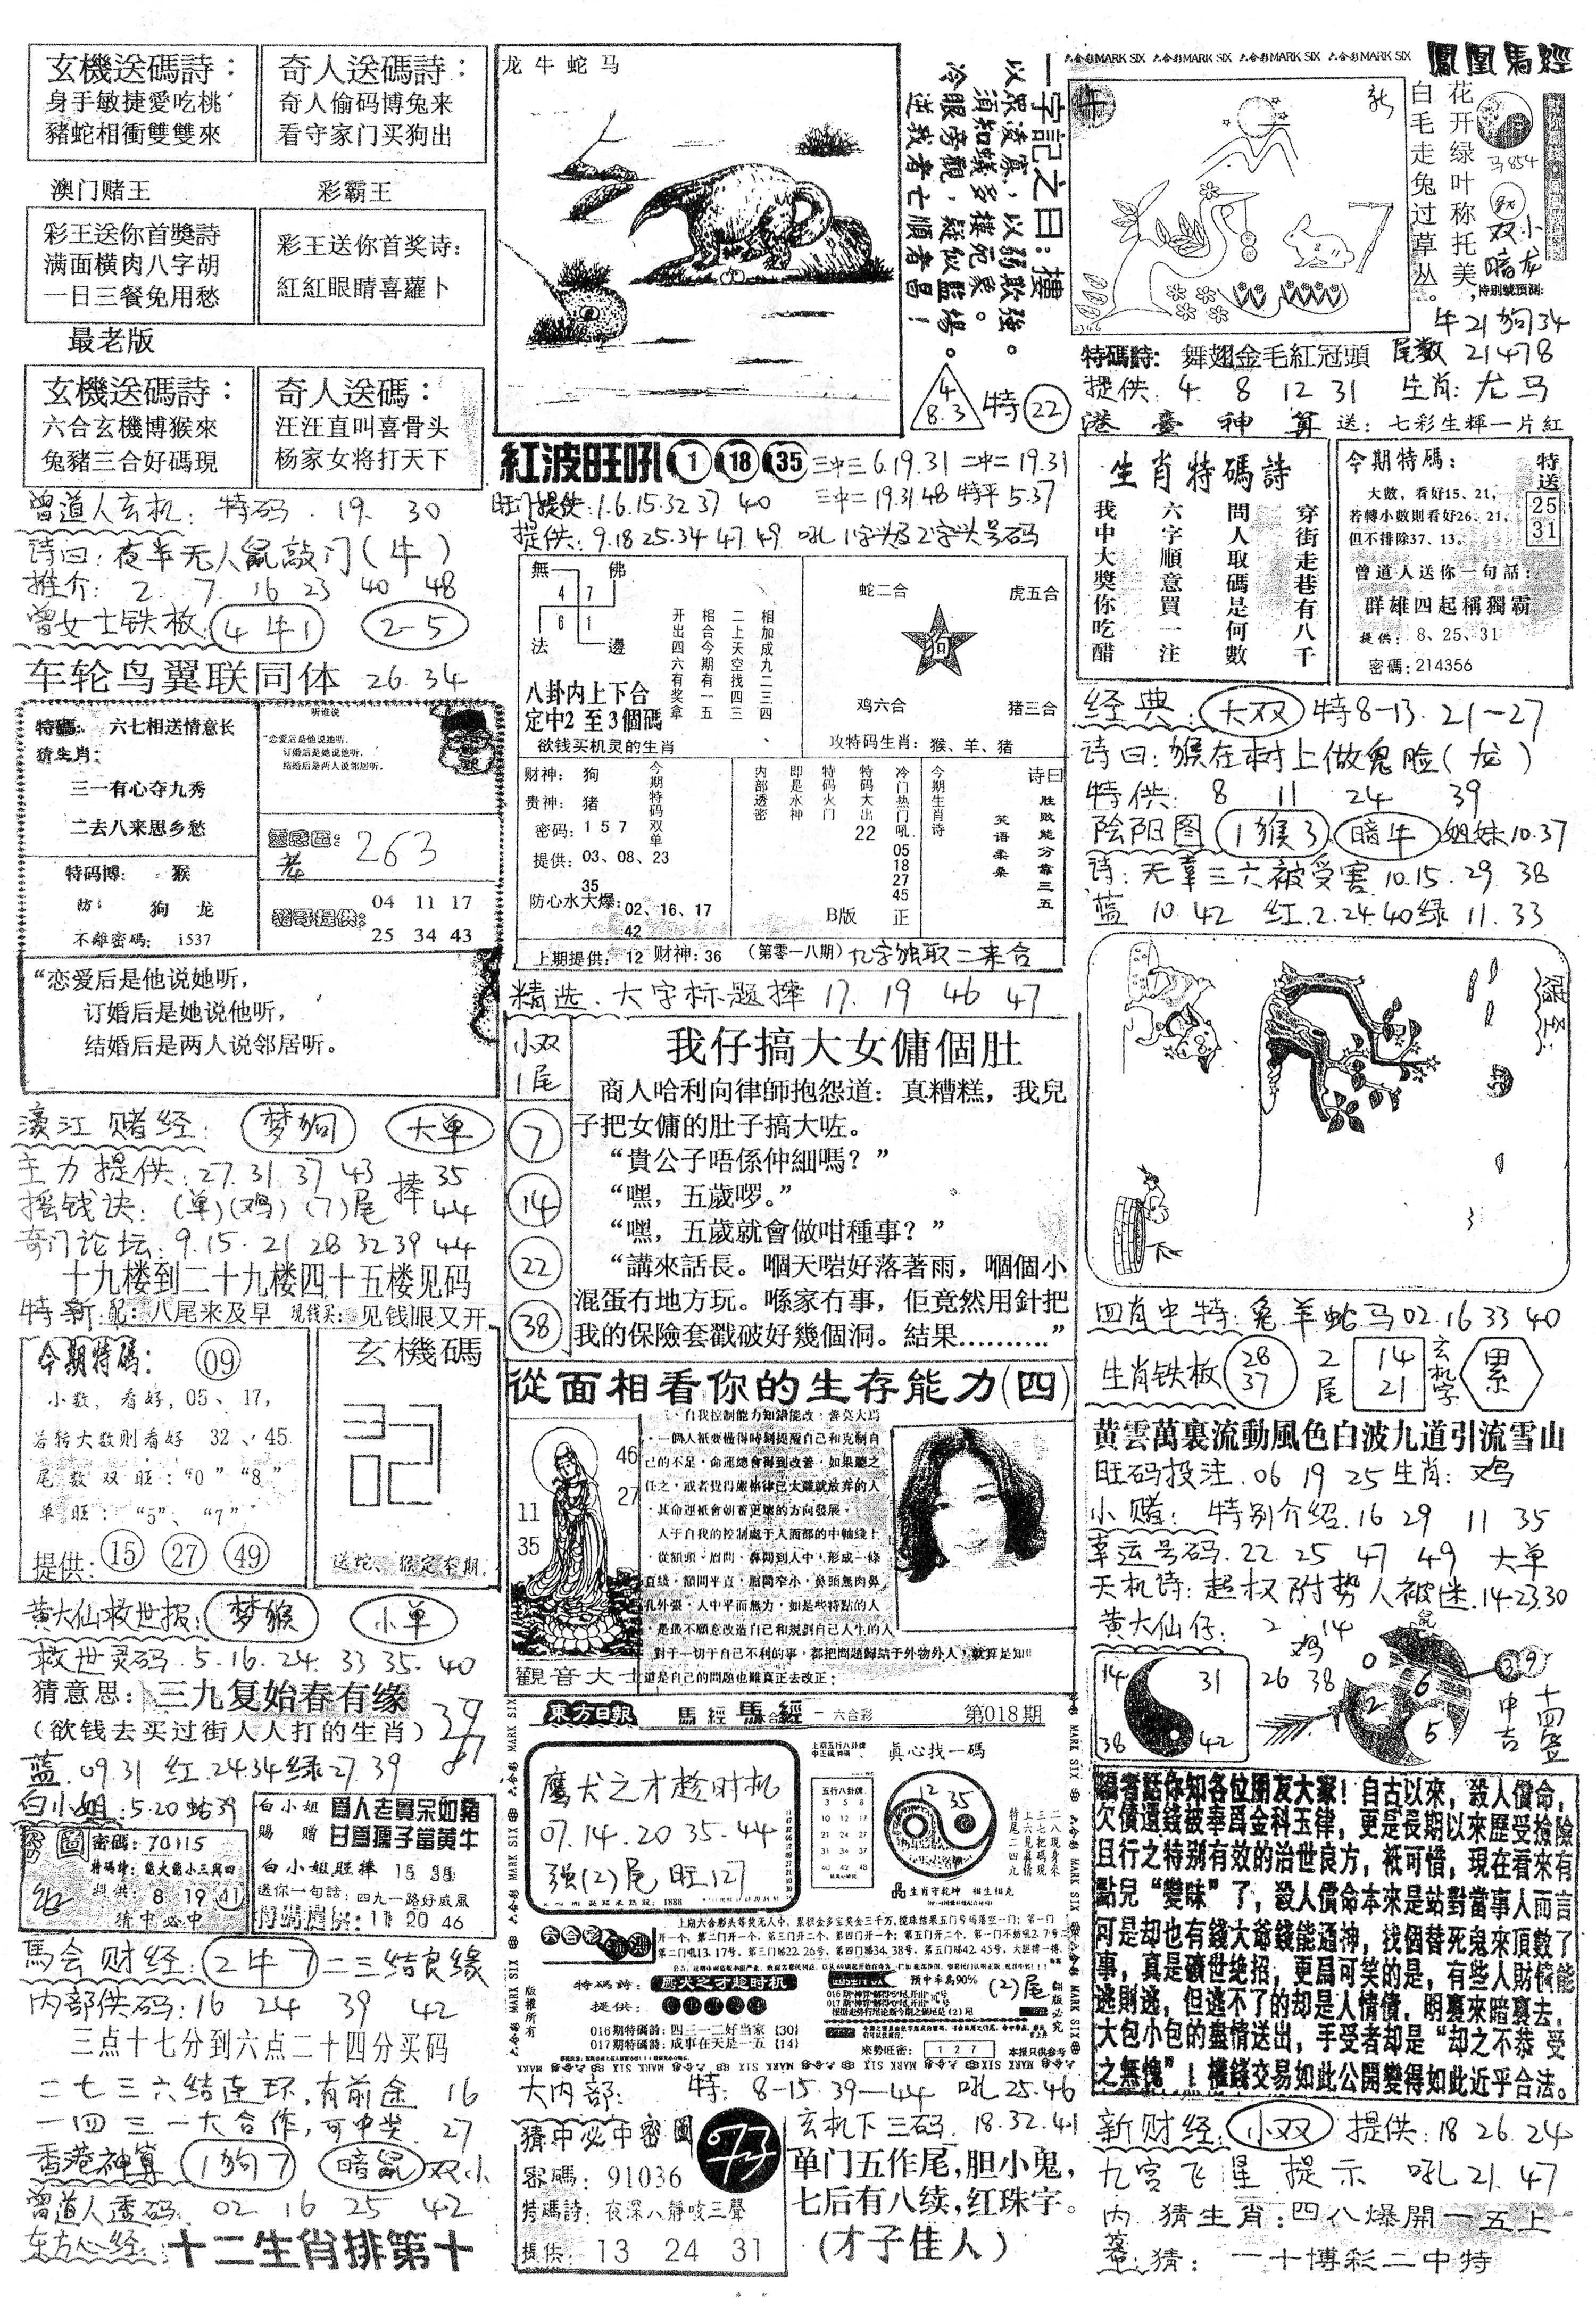 玄機送碼詩：
身手敏捷愛吃桃
豬蛇相衝雙雙來
奇人送碼詩：
奇人偷码博兔来
看守家门买狗出
澳门赌王
彩霸王
彩王送你首獎詩
满面横肉八字胡
一日三餐免用愁
彩王送你首奖诗：
紅紅眼睛喜蘿卜
最老版
玄機送碼詩：
六合玄機博猴來
兔豬三合好碼現
奇人送碼：
汪汪直叫喜骨头
杨家女将打天下
曾道人玄机：特码．19．30
诗曰：夜半无人鼠敲门（牛）
推介：2．7．16 23 40 48
曾女士铁板：4牛1 2-5
车轮鸟翼联同体 26.34
特碼：六七相送情意长
猜生肖：
三一有心夺九秀
二去八来思乡愁
听谁说
“恋爱后是他说她听，
订婚后是她说他听，
结婚后是两人说邻居听。
特码博：猴
防：狗 龙
不離密碼：1537
263
04 11 17
25 34 43
“恋爱后是他说她听，
订婚后是她说他听，
结婚后是两人说邻居听。
濠江赌经：梦狗 大单
主力提供：27.31 37 43 捧35
摇钱诀：（单）（鸡）（7）尾 44
奇门论坛：9.15．21 28 32 39 44
十九楼到二十九楼四十五楼见码
特新 配：八尾来及早 现钱买：见钱眼又开
今期特碼：09
小数，看好，05、17，
若转大数则看好 32、45
尾数双旺：“0”“8”
单旺：“5”、“7”
提供：15 27 49
玄機碼
送蛇、猴定本期．
黄大仙救世报：梦猴 小单
救世灵码．5．16．24．33 35．40
猜意思：三九复始春有缘
（欲钱去买过街人人打的生肖）
蓝．09.31 红．24 34 绿27 39
白小姐：5．20 蛇39
密碼：70115
特碼詩：龍大龍小三與四
提供：8 19 41
猜中必中
白小姐 爲人老實呆如豬
賜贈 甘爲孺子當黄牛
白小姐旺捧 15 38
送你一句話：四九一路好威風
特碼提供：11 20 46
馬会财经：2牛7 二三結良缘
内部供码：16 24 39 42
三点十七分到六点二十四分买码
二七三六结连环，有前途 16
一四三一大合作，可中奖 27
香港神算 1狗7 暗鼠 双小
曾道人透码．02．16 25 42
东方心经：十二生肖排第十
龙牛蛇马
一字記之曰：摟
以眾淩寡，以弱欺強。
須知蟻多摟死象。
冷眼旁觀，疑似監場。
送我者七順者昌！
4
8.3
特22
紅波旺吼 1 18 35 三中三 6.19.31 二中二 19.31
旺门提供：1.6.15.32 37 40 三中二 19.31 48 特平 5.37
提供：9.18 25.34 47.49 吼1字头及2字头号码
無 佛
4 7
6 1
法 邊
相加成九二三四
二上天空找四三
相合今期有一五
开出四六有奖拿
八卦内上下合
定中2至3個碼
欲钱买机灵的生肖
蛇二合
虎五合
狗
鸡六合
猪三合
攻特码生肖：猴、羊、猪
财神：狗
贵神：猪
密码：157
提供：03、08、23
35
防心水大爆：02、16、17
42
今期特码双单
内部透密
即是水神
特码火门
特码大出
22
冷门热门吼
05
18
27
45
B版 正
今期生肖诗
诗曰
胜败能分靠三五
笑语柔柔
上期提供：12 财神：36 （第零一八期）九字独取二来合
精选．大字标题捧 17．19 46 47
小双
1尾
7
14
22
38
我仔搞大女傭個肚
商人哈利向律師抱怨道：真糟糕，我兒
子把女傭的肚子搞大咗。
“貴公子唔係仲細嗎？”
“嘿，五歲啰。”
“嘿，五歲就會做咁種事？”
“講來話長。嗰天啱好落著雨，嗰個小
混蛋冇地方玩。喺家冇事，佢竟然用針把
我的保險套戳破好幾個洞。結果…………”
從面相看你的生存能力（四）
46
27
11
35
觀音大士
·一個人衹要懂得時刻提醒自己和克制自
己的不足，命運總會得到改善，如果聽之
任之，或者覺得嚴格律己太難就放弃的人
，其命運衹會朝着更壞的方向發展。
人于自我的控制處于人面部的中軸綫上
·從額頭、眉間、鼻間到人中，形成一條
直綫，額間平直，眉間窄小，鼻頭無肉鼻
孔外張，人中平而無力，如是些特點的人
，是最不願意改造自己和規劃自己人生的人
對于一切于自己不利的事，都把問題歸結于外物外人，就算是知
道是自己的問題也難真正去改正：
東方日報 馬經 馬經 六合彩 第018期
鹰犬之才趁时机
07．14．20 35．44
强（2）尾 旺127
真心找一碼
五行八卦牌
12 35
生肖守乾坤 相生相克
特碼詩：鷹犬之才趁时机
016期特碼詩：四三一二好当家 {30}
017期特碼詩：成事在天是一五 {14}
预中率爲90%
（2）尾
來勢旺密：127
本报只供参考
翻版必究
版權所有
大内部：特：8-15．39—44 吼 25.46
猜中必中密圖
密碼：91036
特碼詩：夜深八靜咳三聲
提供：13 24 31
玄机下三码．18.32.41
单门五作尾，胆小鬼，
七后有八续，红珠字。
（才子佳人）
六合彩MARK SIX 六合彩MARK SIX 六合彩MARK SIX 六合彩MARK SIX
鳳凰馬經
花开绿叶称托美，
白毛走兔过草丛。
马854
双小
暗龙
特别號預測：
牛21 狗34
特碼詩：舞翅金毛紅冠頭 尾数 21478
提供．4 8 12 31 生肖：龙马
港臺神算 送：七彩生輝一片紅
生肖特碼詩
穿街走巷有八千
問人取碼是何數
六字順意買一注
我中大獎你吃醋
今期特碼：
大數，看好15、21，
若轉小數則看好26、21，
但不排除37、13。
特送
25
31
曾道人送你一句話：
群雄四起稱獨霸
提供：8、25、31
密碼：214356
经典：大双 特8-13．21-27
诗曰：猴在树上做鬼脸（龙）
特供：8 11 24 39
陰阳图 1猴3 暗牛 姐妹10.37
诗：无辜三六被受害 10.15．29 38
蓝 10．42 红．2．24 40 绿 11．33
赌圣：
四肖中特：兔羊蛇马 02．16 33 40
生肖铁板 28 37 2尾 14 21 玄机字 累
黄雲萬裏流動風色白波九道引流雪山
旺码投注．06 19 25 生肖：鸡
小赌：特别介绍．16 29 11 35
幸运号码．22．25 47 49 大单
天机诗：趋权附势人被迷．14.23.30
黄大仙仔：2 鸡 14
26 38
14 31
38 42
鼠
0 6
2 5
39
中吉
十四签
編者話你知各位朋友大家！自古以來，殺人償命，
欠債還錢被奉爲金科玉律，更是長期以來歷受撿驗
且行之特别有效的治世良方，衹可惜，現在看來有
點兒“變味”了，殺人償命本來是站對當事人而言
可是却也有錢大爺錢能通神，找個替死鬼來頂數了
事，真是礦世绝招，更爲可笑的是，有些人財債能
逃則逃，但逃不了的却是人情債，明裏來暗裏去，
大包小包的盡情送出，手受者却是“却之不恭 受
之無愧”！權錢交易如此公開變得如此近乎合法。
新财经：小双 提供：18 26．24
九宫飞星 提示 吼21．47
内 猜生肖：四八爆開一五上
幕 猜：一十博彩二中特